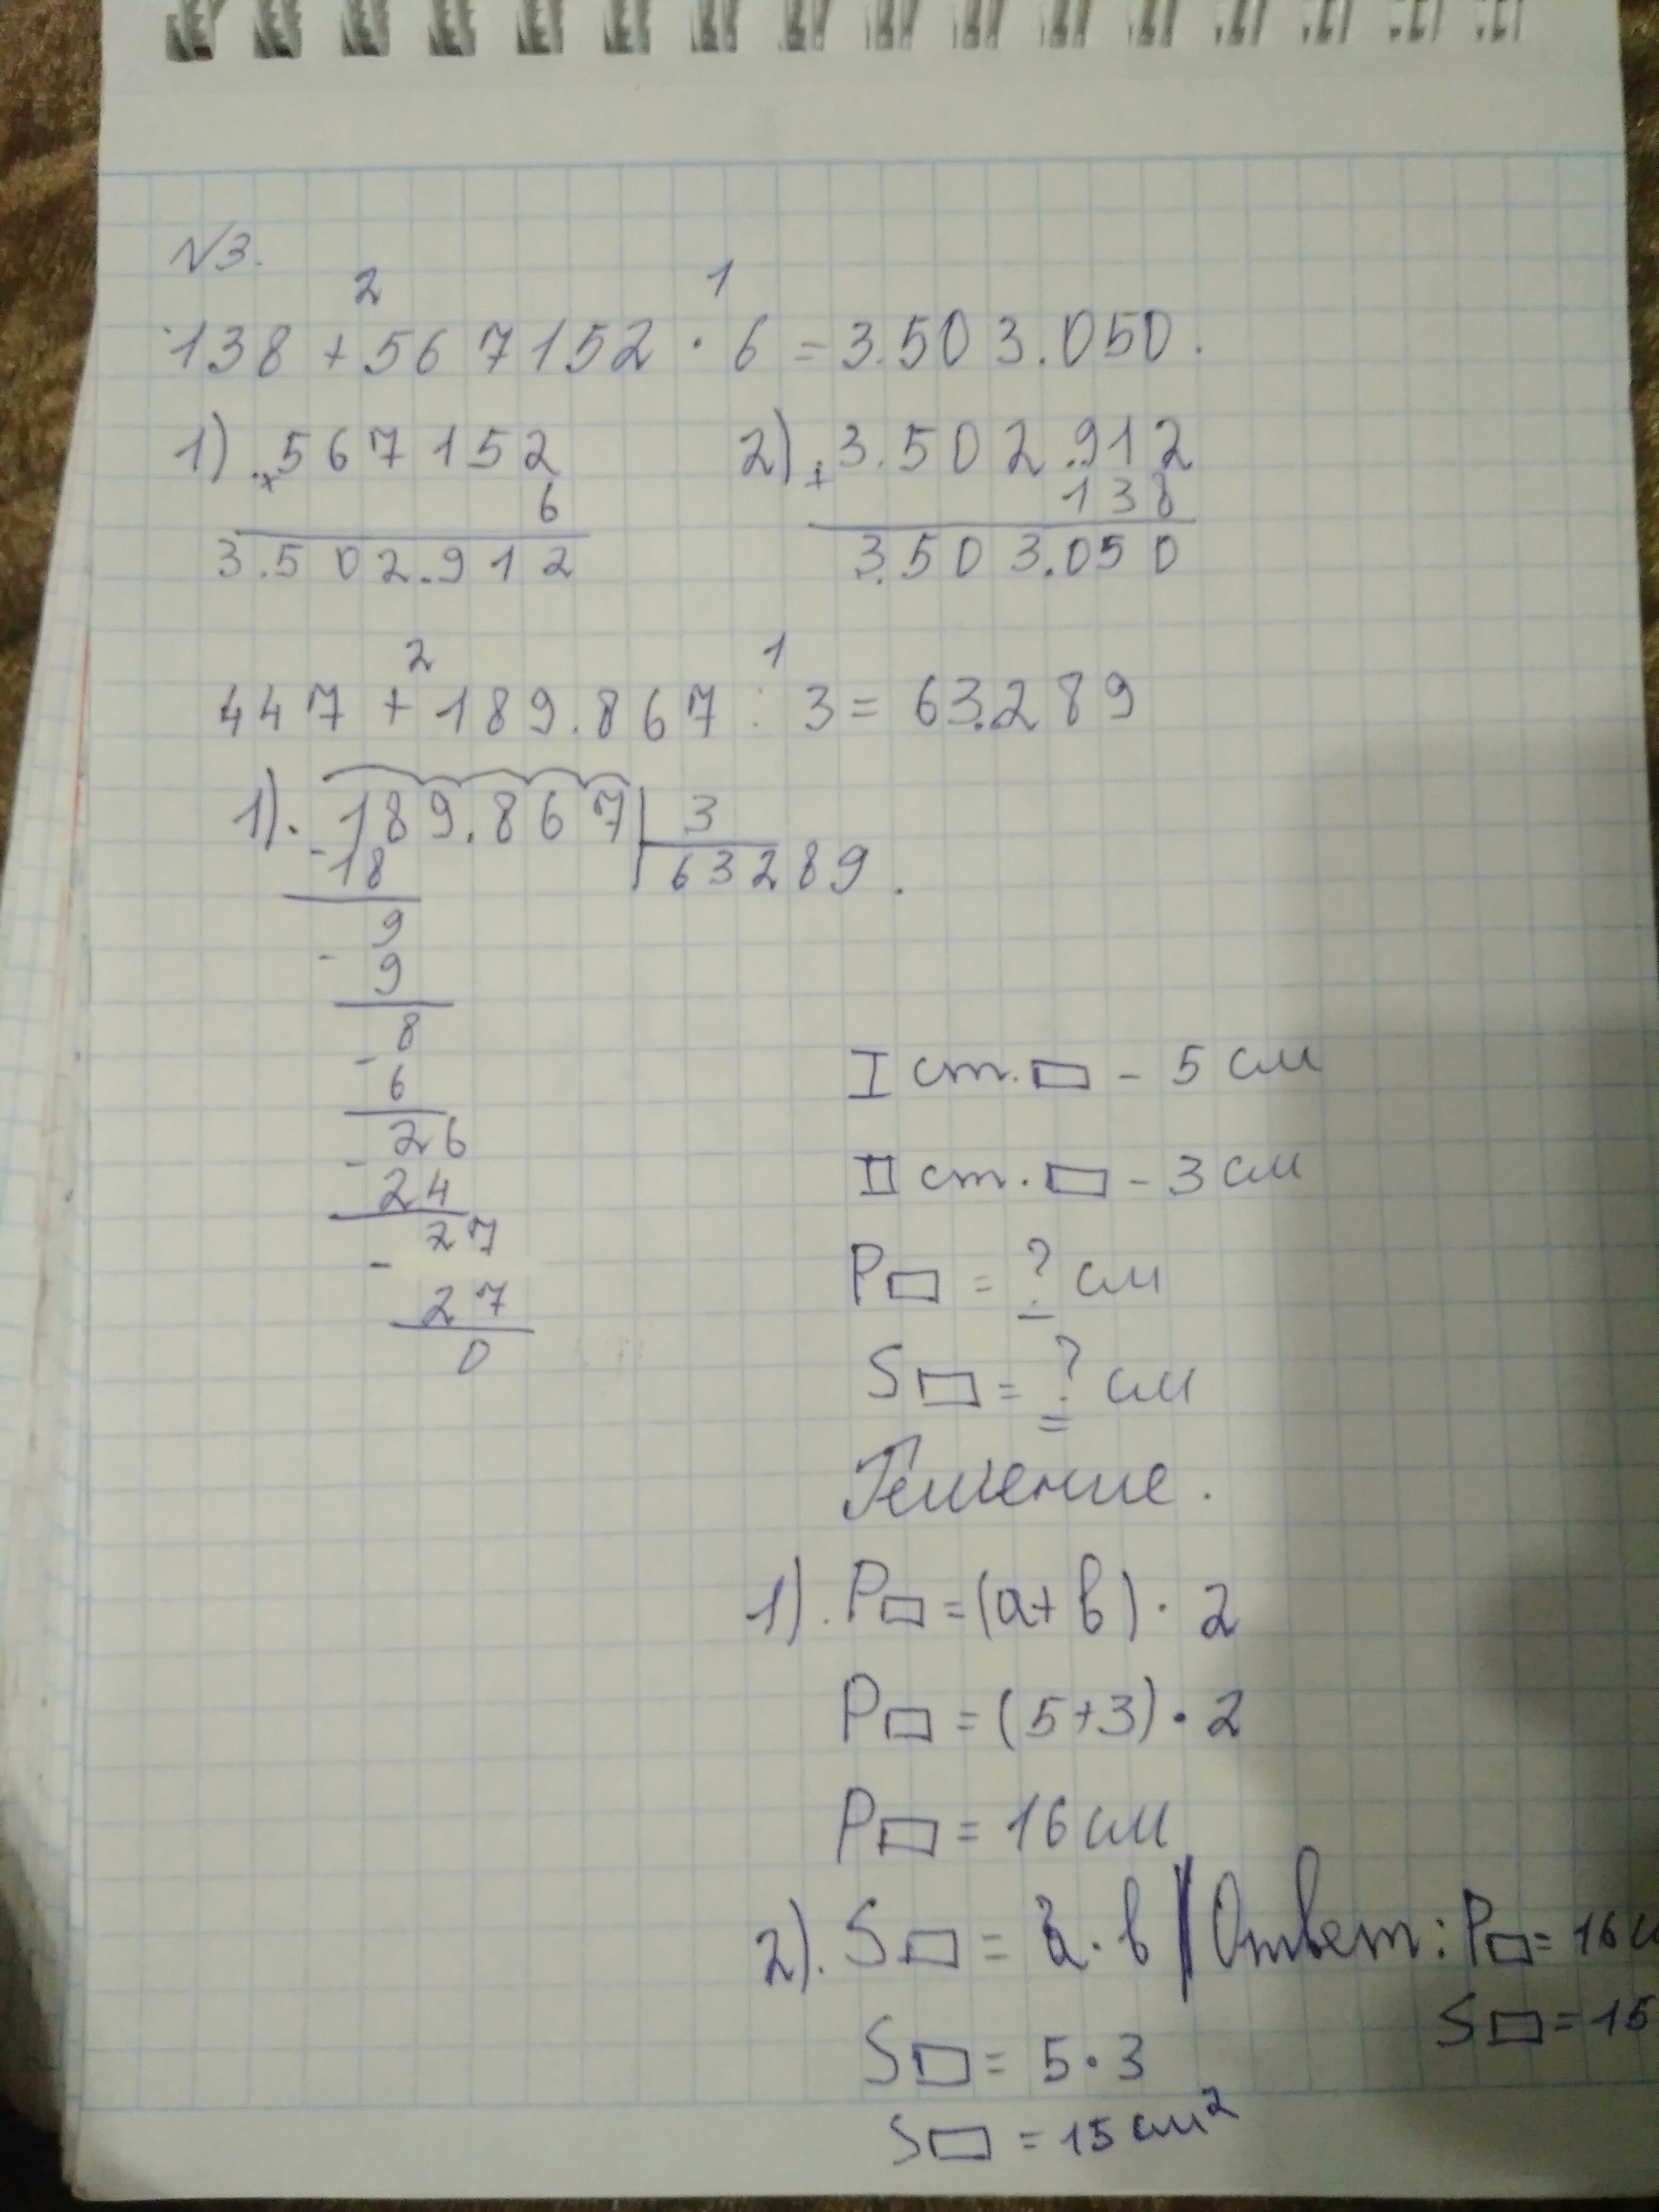 №3.
2 1
138 + 567152 · 6 = 3.503.050.
1) 567152
× 6
3.502.912
2) 3.502.912
+ 138
3.503.050
2 1
447 + 189.867 : 3 = 63.289
1). 189.867 | 3
- 18 63289.
9
- 9
8
- 6
26
- 24
27
- 27
0
I ст. ▭ - 5 см
II ст. ▭ - 3 см
P▭ = ? см
S▭ = ? см
Решение.
1). P▭ = (a + b) · 2
P▭ = (5 + 3) · 2
P▭ = 16 см
2). S▭ = a · b | Ответ: P▭ = 16 с
S▭ = 15
S▭ = 5 · 3
S▭ = 15 см²